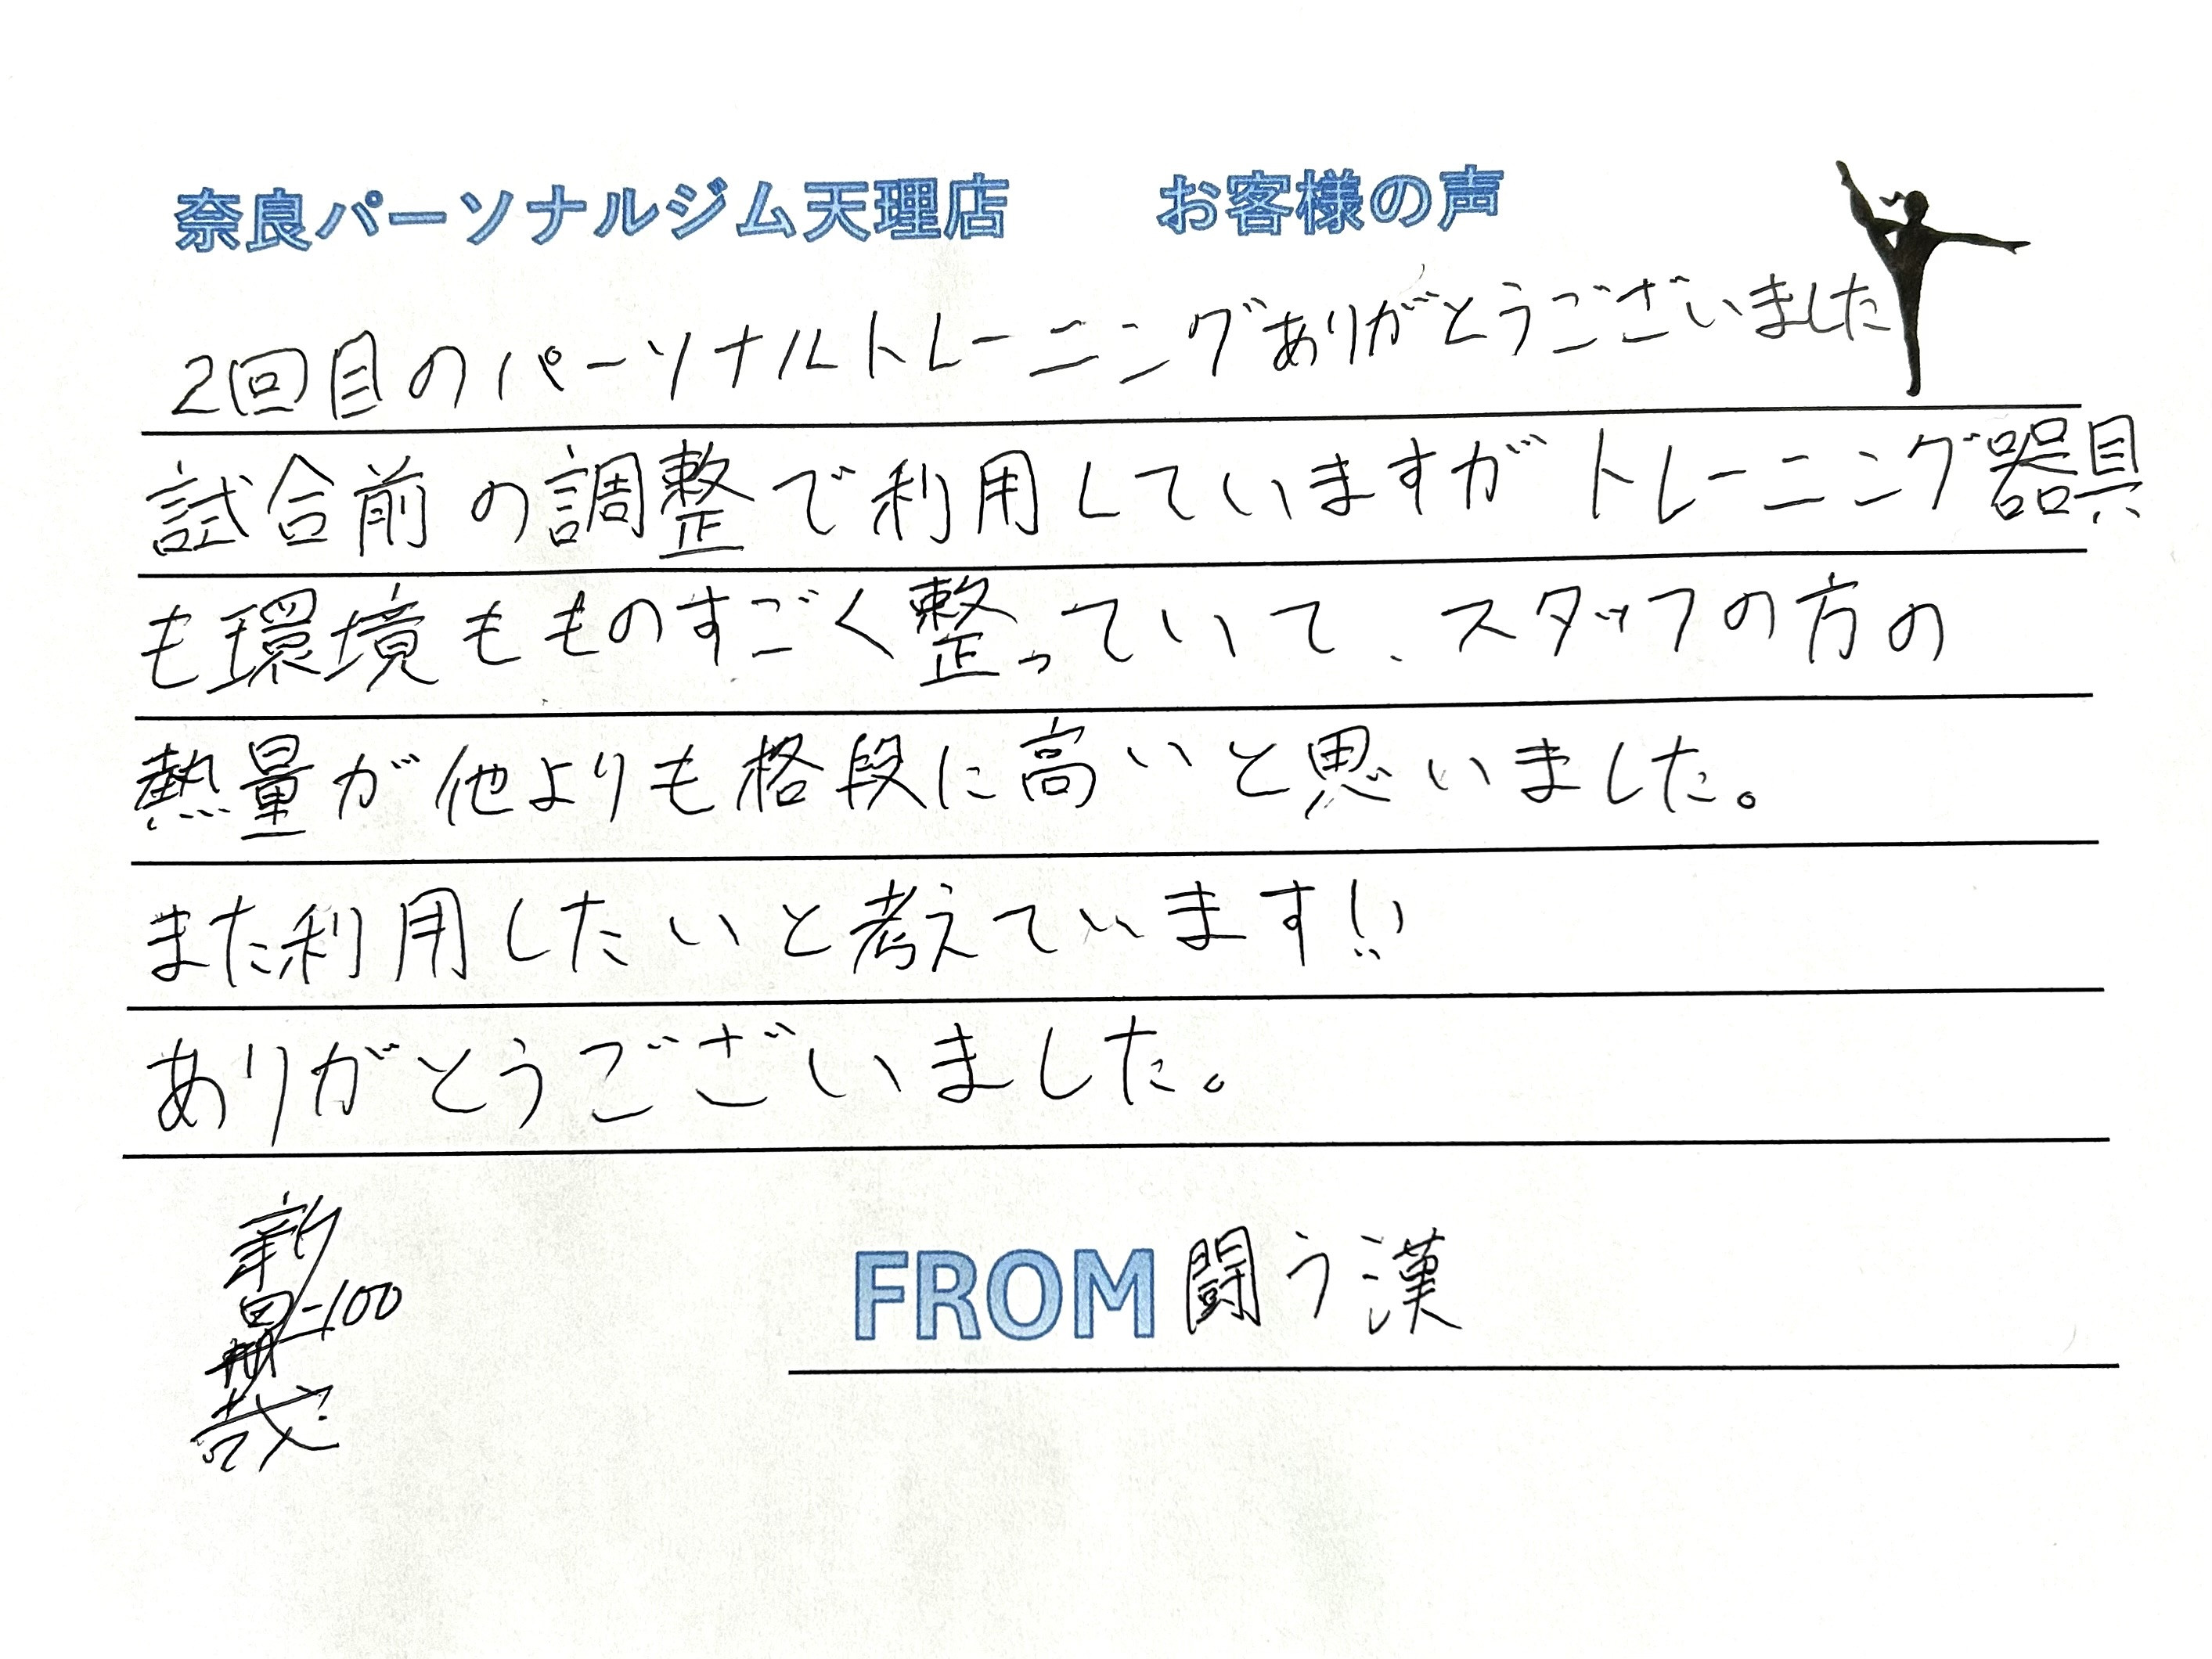 奈良パーソナルジム天理店 お客様の声
2回目のパーソナルトレーニングありがとうございました
試合前の調整で利用していますがトレーニング器具
も環境もものすごく整っていて、スタッフの方の
熱量が他よりも格段に高いと思いました。
また利用したいと考えています!!
ありがとうございました。
FROM 闘う漢
-100